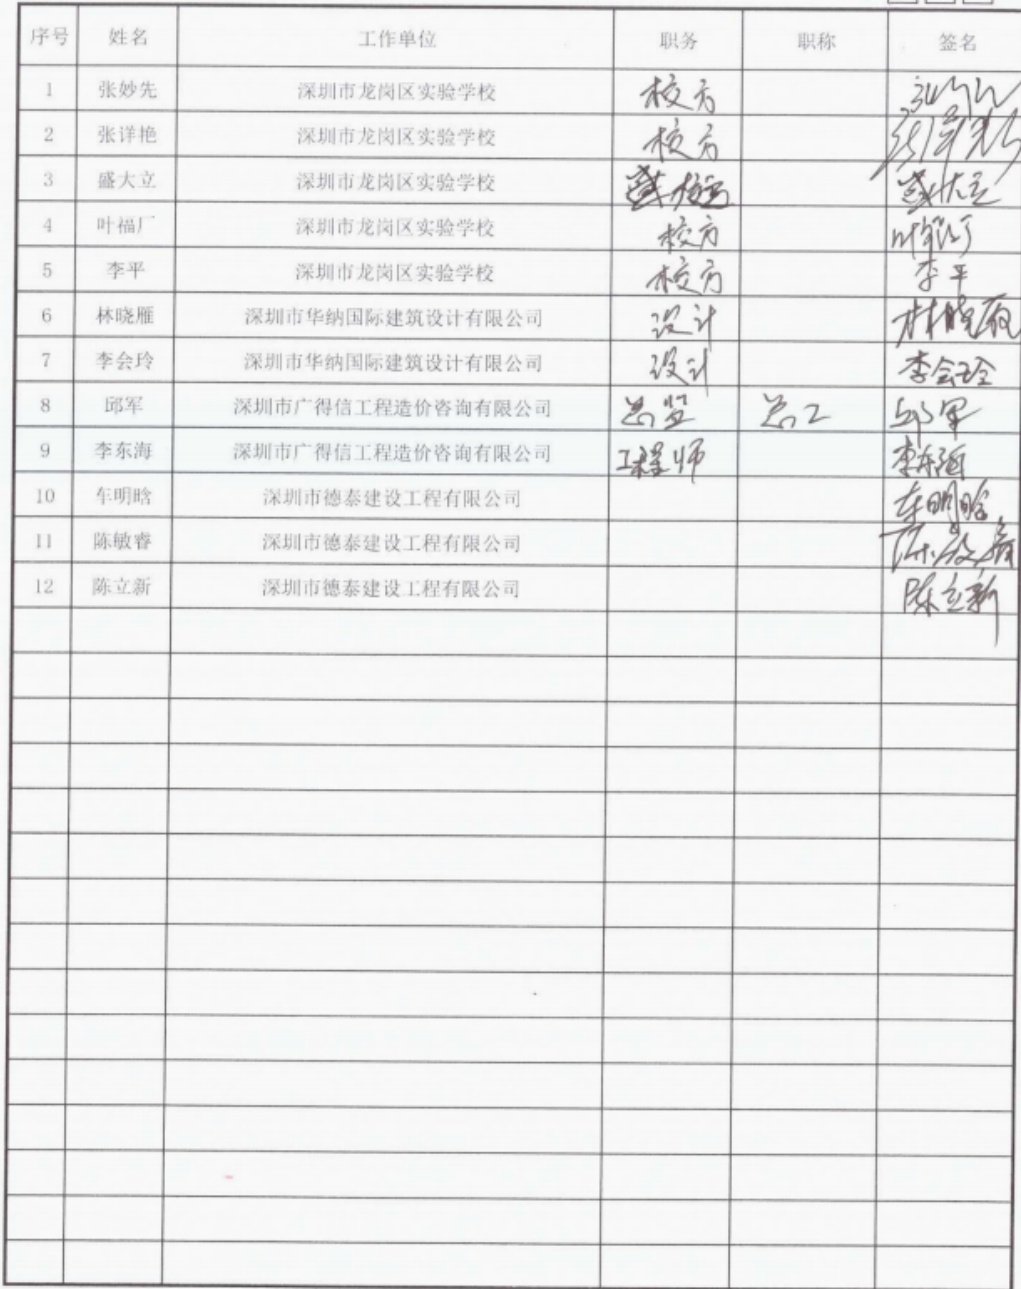 序号 姓名 工作单位 职务 职称 签名
1 张妙先 深圳市龙岗区实验学校 校方
2 张详艳 深圳市龙岗区实验学校 校方
3 盛大立 深圳市龙岗区实验学校 校方 盛大立
4 叶福厂 深圳市龙岗区实验学校 校方
5 李平 深圳市龙岗区实验学校 校方 李平
6 林晓雁 深圳市华纳国际建筑设计有限公司 设计 林晓雁
7 李会玲 深圳市华纳国际建筑设计有限公司 设计 李会玲
8 邱军 深圳市广得信工程造价咨询有限公司 总监 总工 邱军
9 李东海 深圳市广得信工程造价咨询有限公司 工程师 李东海
10 车明晗 深圳市德泰建设工程有限公司 车明晗
11 陈敏睿 深圳市德泰建设工程有限公司 陈敏睿
12 陈立新 深圳市德泰建设工程有限公司 陈立新